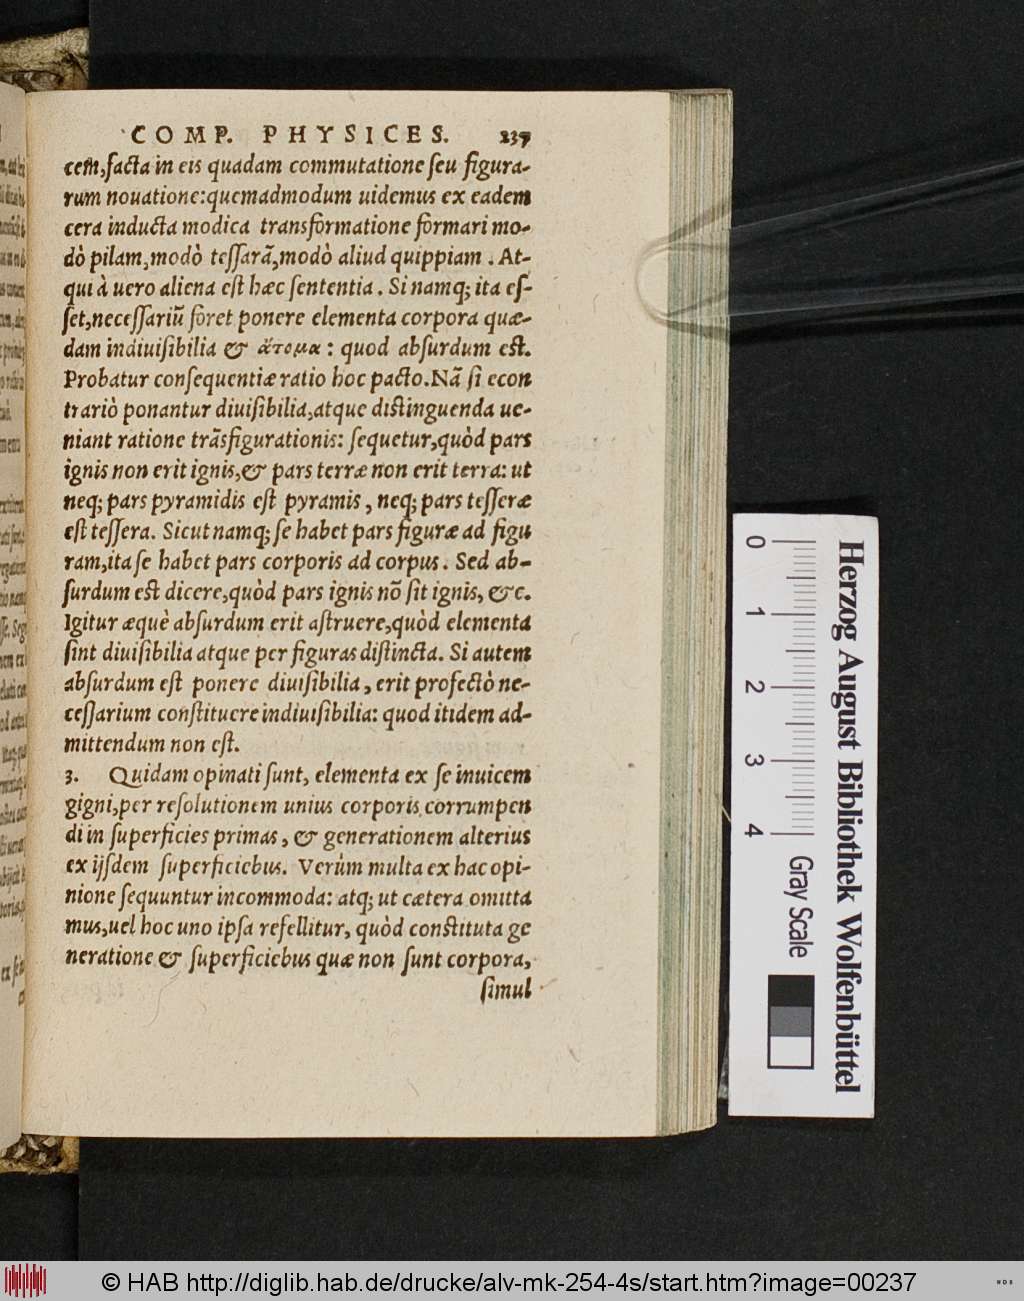 COMP. PHYSICES. 237
cem, facta in eis quadam commutatione ſeu figura-
rum nouatione: quemadmodum uidemus ex eadem
cera inducta modica transformatione formari mo-
dò pilam, modò teſſarã, modò aliud quippiam. At-
qui à uero aliena eſt hæc ſententia. Si namq; ita eſ-
ſet, neceſſariũ foret ponere elementa corpora quæ-
dam indiuiſibilia & ἄτομα: quod abſurdum eſt.
Probatur conſequentiæ ratio hoc pacto. Nã ſi econ
trariò ponantur diuiſibilia, atque diſtinguenda ue-
niant ratione trãsfigurationis: ſequetur, quòd pars
ignis non erit ignis, & pars terræ non erit terra: ut
neq; pars pyramidis eſt pyramis, neq; pars teſſeræ
eſt teſſera. Sicut namq; ſe habet pars figuræ ad figu
ram, ita ſe habet pars corporis ad corpus. Sed ab-
ſurdum eſt dicere, quòd pars ignis nõ ſit ignis, &c.
Igitur æquè abſurdum erit aſtruere, quòd elementa
ſint diuiſibilia atque per figuras diſtincta. Si autem
abſurdum eſt ponere diuiſibilia, erit profectò ne-
ceſſarium conſtituere indiuiſibilia: quod itidem ad-
mittendum non eſt.
3. Quidam opinati ſunt, elementa ex ſe inuicem
gigni, per reſolutionem unius corporis corrumpen
di in ſuperficies primas, & generationem alterius
ex ijſdem ſuperficiebus. Verùm multa ex hac opi-
nione ſequuntur incommoda: atq; ut cætera omitta
mus, uel hoc uno ipſa refellitur, quòd conſtituta ge
neratione & ſuperficiebus quæ non ſunt corpora,
ſimul
0 1 2 3 4 Gray Scale
Herzog August Bibliothek Wolfenbüttel
© HAB http://diglib.hab.de/drucke/alv-mk-254-4s/start.htm?image=00237